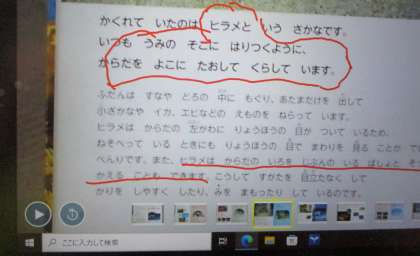 かくれて いたのは ヒラメと いう さかなです。
いつも うみの そこに はりつくように、
からだを よこに たおして くらして います。
ふだんは すなや どろの 中に もぐり、あたまだけを 出して
小ざかなや イカ、エビなどの えものを ねらって います。
ヒラメは からだの 左がわに りょうほうの 目が ついて いるため、
ねそべって いる ときにも りょうほうの 目で まわりを 見る ことが
べんりです。また、ヒラメは からだの いろを じぶんの いる ばしょと
かえる ことも できます。こうして すがたを 目立たなく して
かりを しやすく したり、みを まもったり して いるのです。
ここに入力して検索